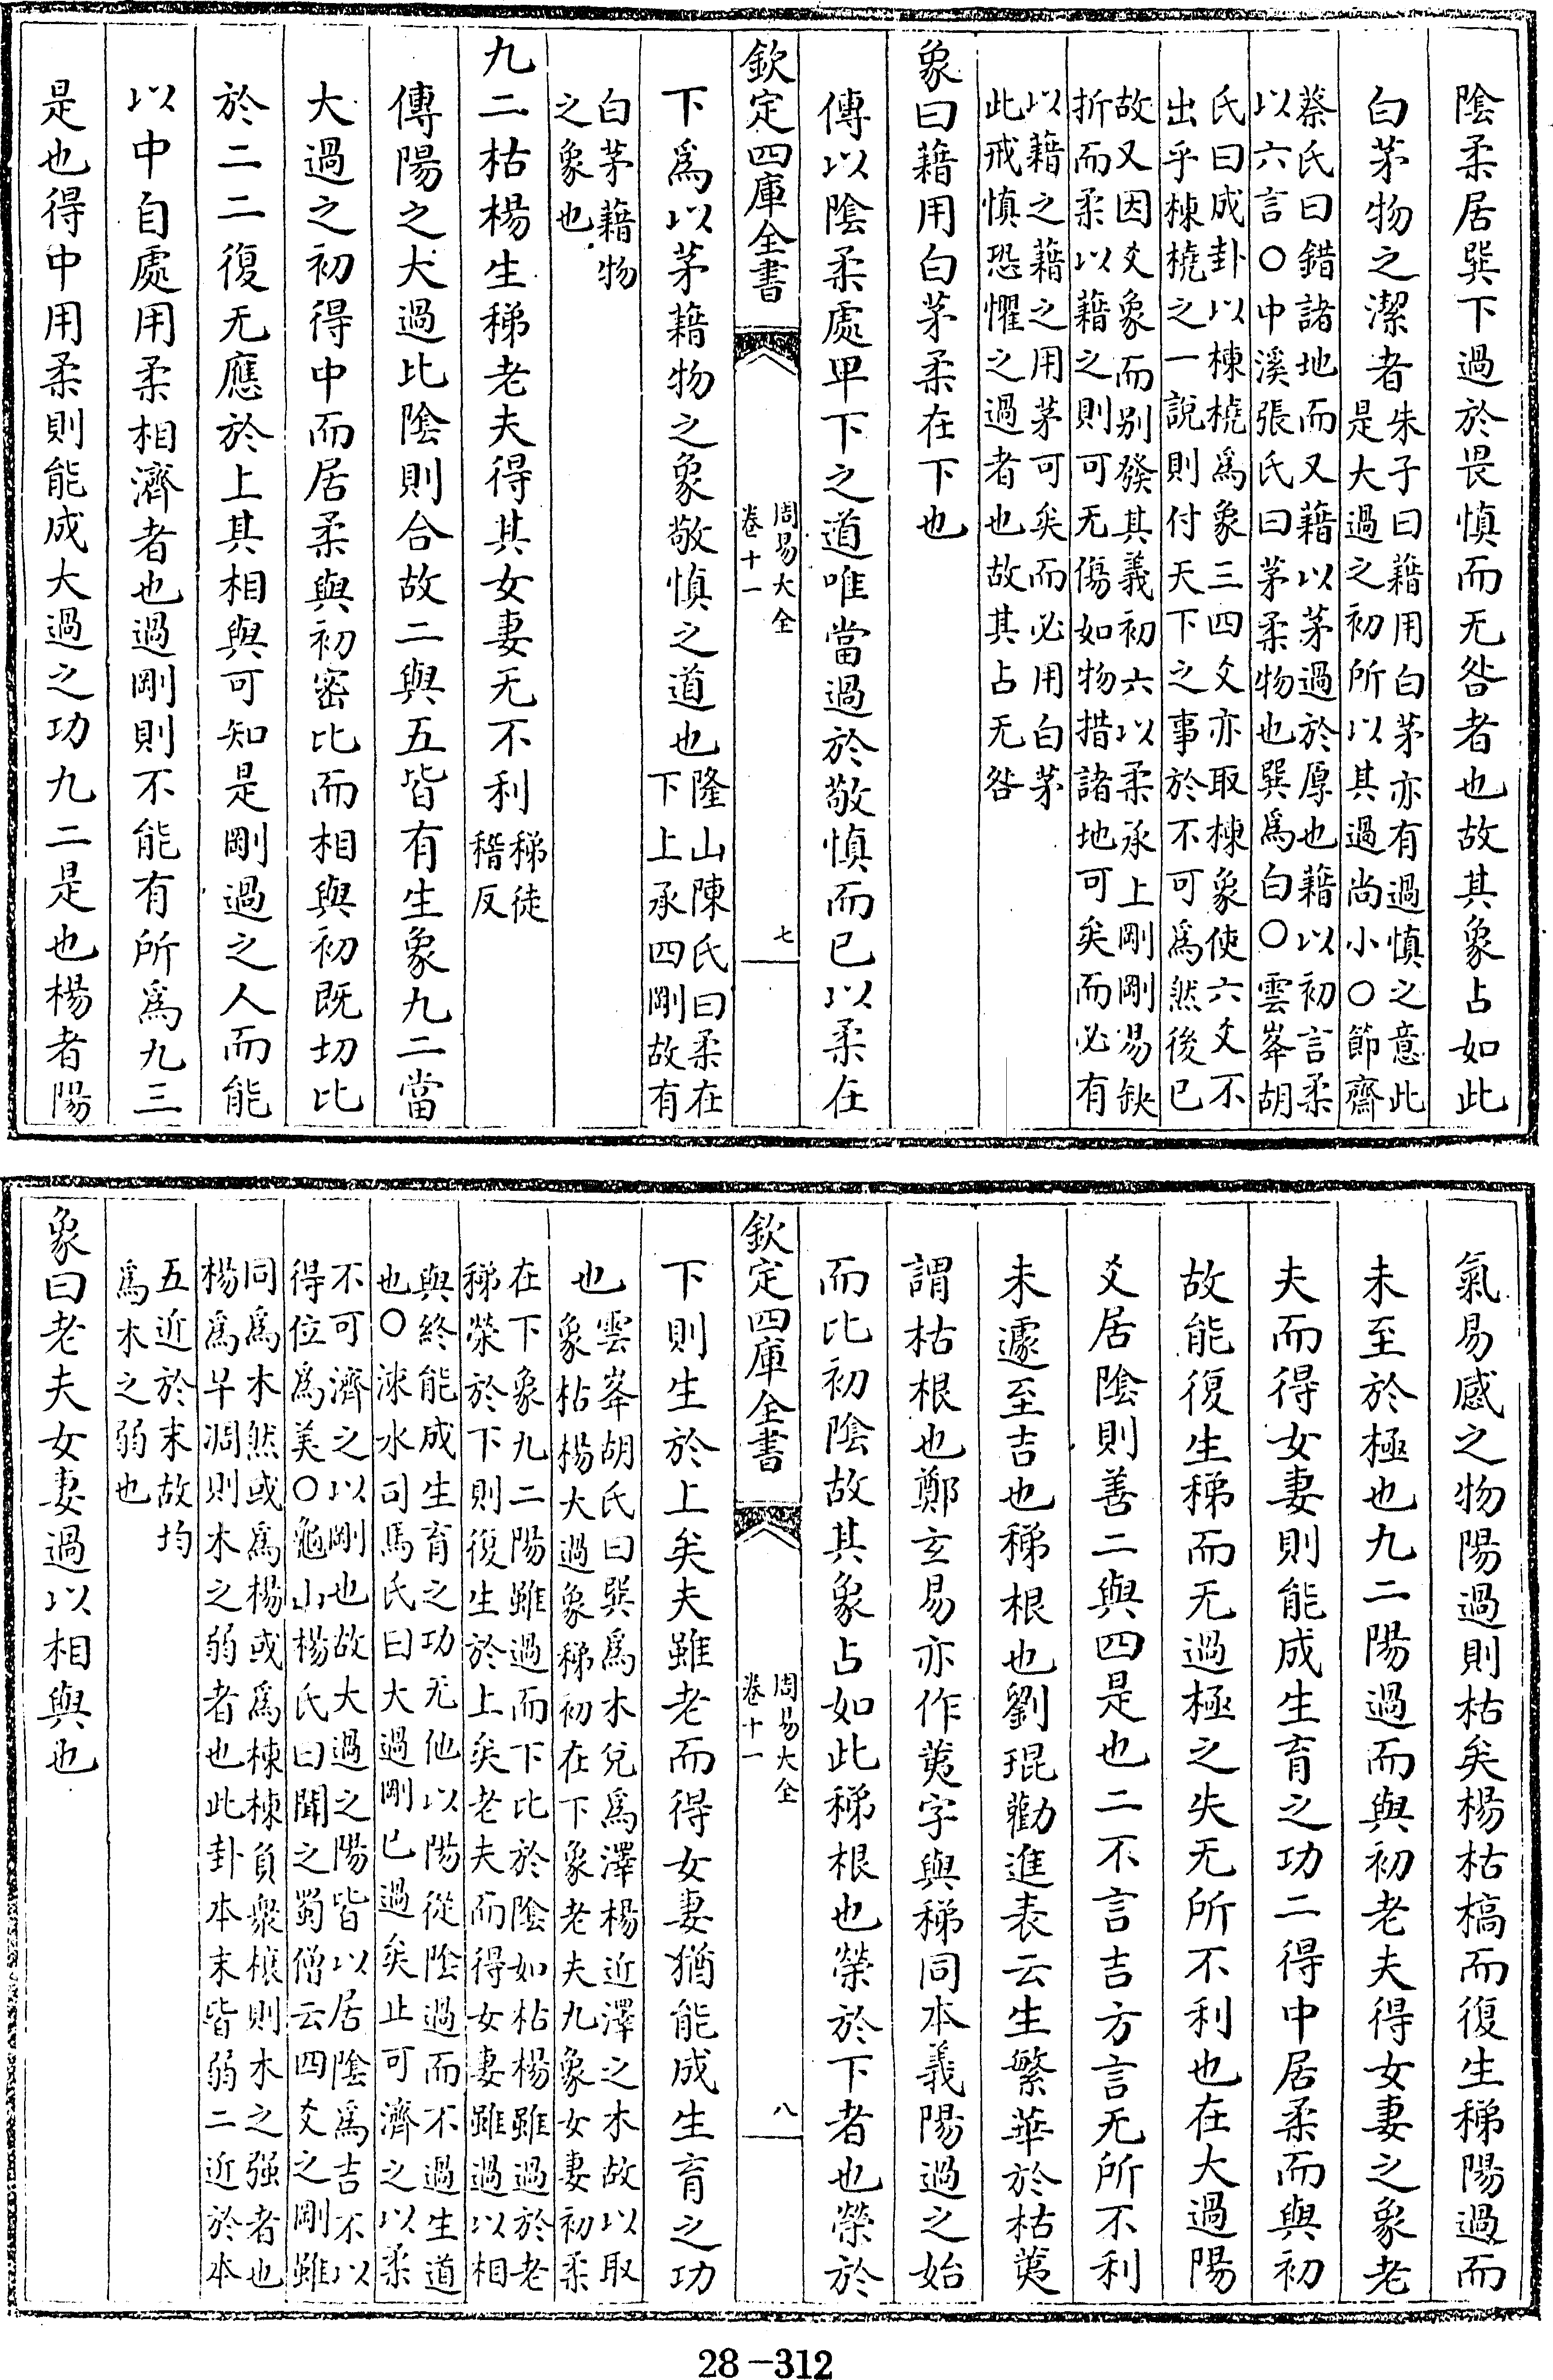 陰柔居巽下過於畏慎而无咎者也故其象占如此
白茅物之潔者
朱子曰藉用白茅亦有過慎之意此
是大過之初所以其過尚小○節齋
蔡氏曰錯諸地而又藉以茅過於厚也藉以初言柔
以六言○中溪張氏曰茅柔物也巽爲白○雲峯胡
氏曰成卦以棟橈爲象三四爻亦取棟象使六爻不
出乎棟橈之一說則付天下之事於不可爲然後已
故又因爻象而别發其義初六以柔承上剛剛易缺
折而柔以藉之則可无傷如物措諸地可矣而必有
以藉之藉之用茅可矣而必用白茅
此戒慎恐懼之過過者也故其占无咎
象曰藉用白茅柔在下也
傳以陰柔處卑下之道唯當過於敬慎而已以柔在
欽定四庫全書
周易大全
卷十一
七
下爲以茅藉物之象敬慎之道也
隆山陳氏曰柔在
下上承四剛故有
白茅藉物
之象也
九二枯楊生稊老夫得其女妻无不利
稊徒
稽反
傳陽之大過比陰則合故二與五皆有生象九二當
大過之初得中而居柔與初密比而相與初既切比
於二二復无應於上其相與可知是剛過之人而能
以中自處用柔相濟者也過剛則不能有所爲九三
是也得中用柔則能成大過之功九二是也楊者陽
氣易感之物陽過則枯矣楊枯槁而復生稊陽過而
未至於極也九二陽過而與初老夫得女妻之象老
夫而得女妻則能成生育之功二得中居柔而與初
故能復生稊而无過極之失无所不利也在大過陽
爻居陰則善二與四是也二不言吉方言无所不利
未遽至吉也稊根也劉琨勸進表云生繁華於枯荑
謂枯根也鄭玄易亦作荑字與稊同本義陽過之始
而比初陰故其象占如此稊根也榮於下者也榮於
欽定四庫全書
周易大全
卷十一
八
下則生於上矣夫雖老而得女妻猶能成生育之功
也
雲峯胡氏曰巽爲木兌爲澤楊近澤之木故以取
象枯楊大過象稊初在下象老夫九象女妻初柔
在下象九二陽雖過而下比於陰如枯楊雖過於老
稊榮於下則復生於上矣老夫而得女妻雖過以相
與終能成生育之功无他以陽從陰過而不過生道
也○涑水司馬氏曰大過剛已過矣止可濟之以柔
不可濟之以剛也故大過之陽皆以居陰爲吉不以
得位爲美○龜山楊氏曰聞之蜀僧云四爻之剛雖
同爲木然或爲楊或爲棟棟負衆榱則木之强者也
楊爲早凋則木之弱者也此卦本末皆弱二近於本
五近於末故均
爲木之弱也
象曰老夫女妻過以相與也
28-312